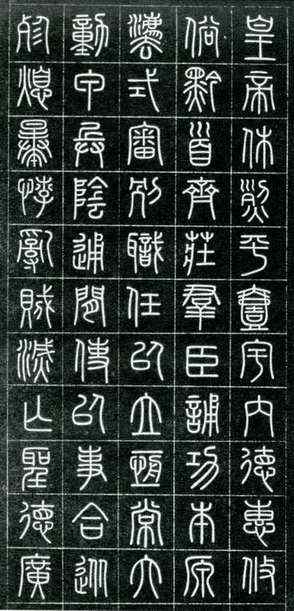 皇帝休烈平壹宇内德惠攸
俗黔首齊莊羣臣誦功本原
灋式審別職任以立恆常六
動甲兵陰通閒使以事合從
殄熄暴悖亂賊滅亡聖德廣